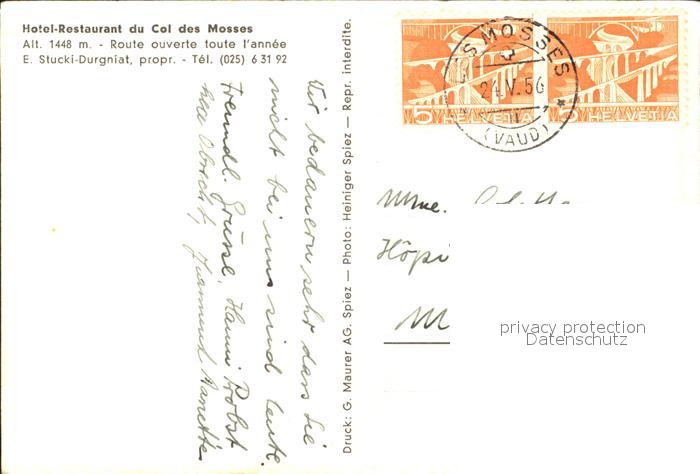 Hotel-Restaurant du Col des Mosses
Alt. 1448 m. - Route ouverte toute l'année
E. Stucki-Durgniat, propr. - Tél. (025) 6 31 92
Wir bedauern sehr dass Sie
nicht bei uns sind heute.
Freundl. Grüsse, Hanni Probst
Druck: G. Maurer AG. Spiez — Photo: Heiniger Spiez — Repr. interdite.
S MOSSES
24.IV.56
(VAUD)
5 HELVETIA
5 HELVETIA
Mme.
Höpi
M
privacy protection
Datenschutz